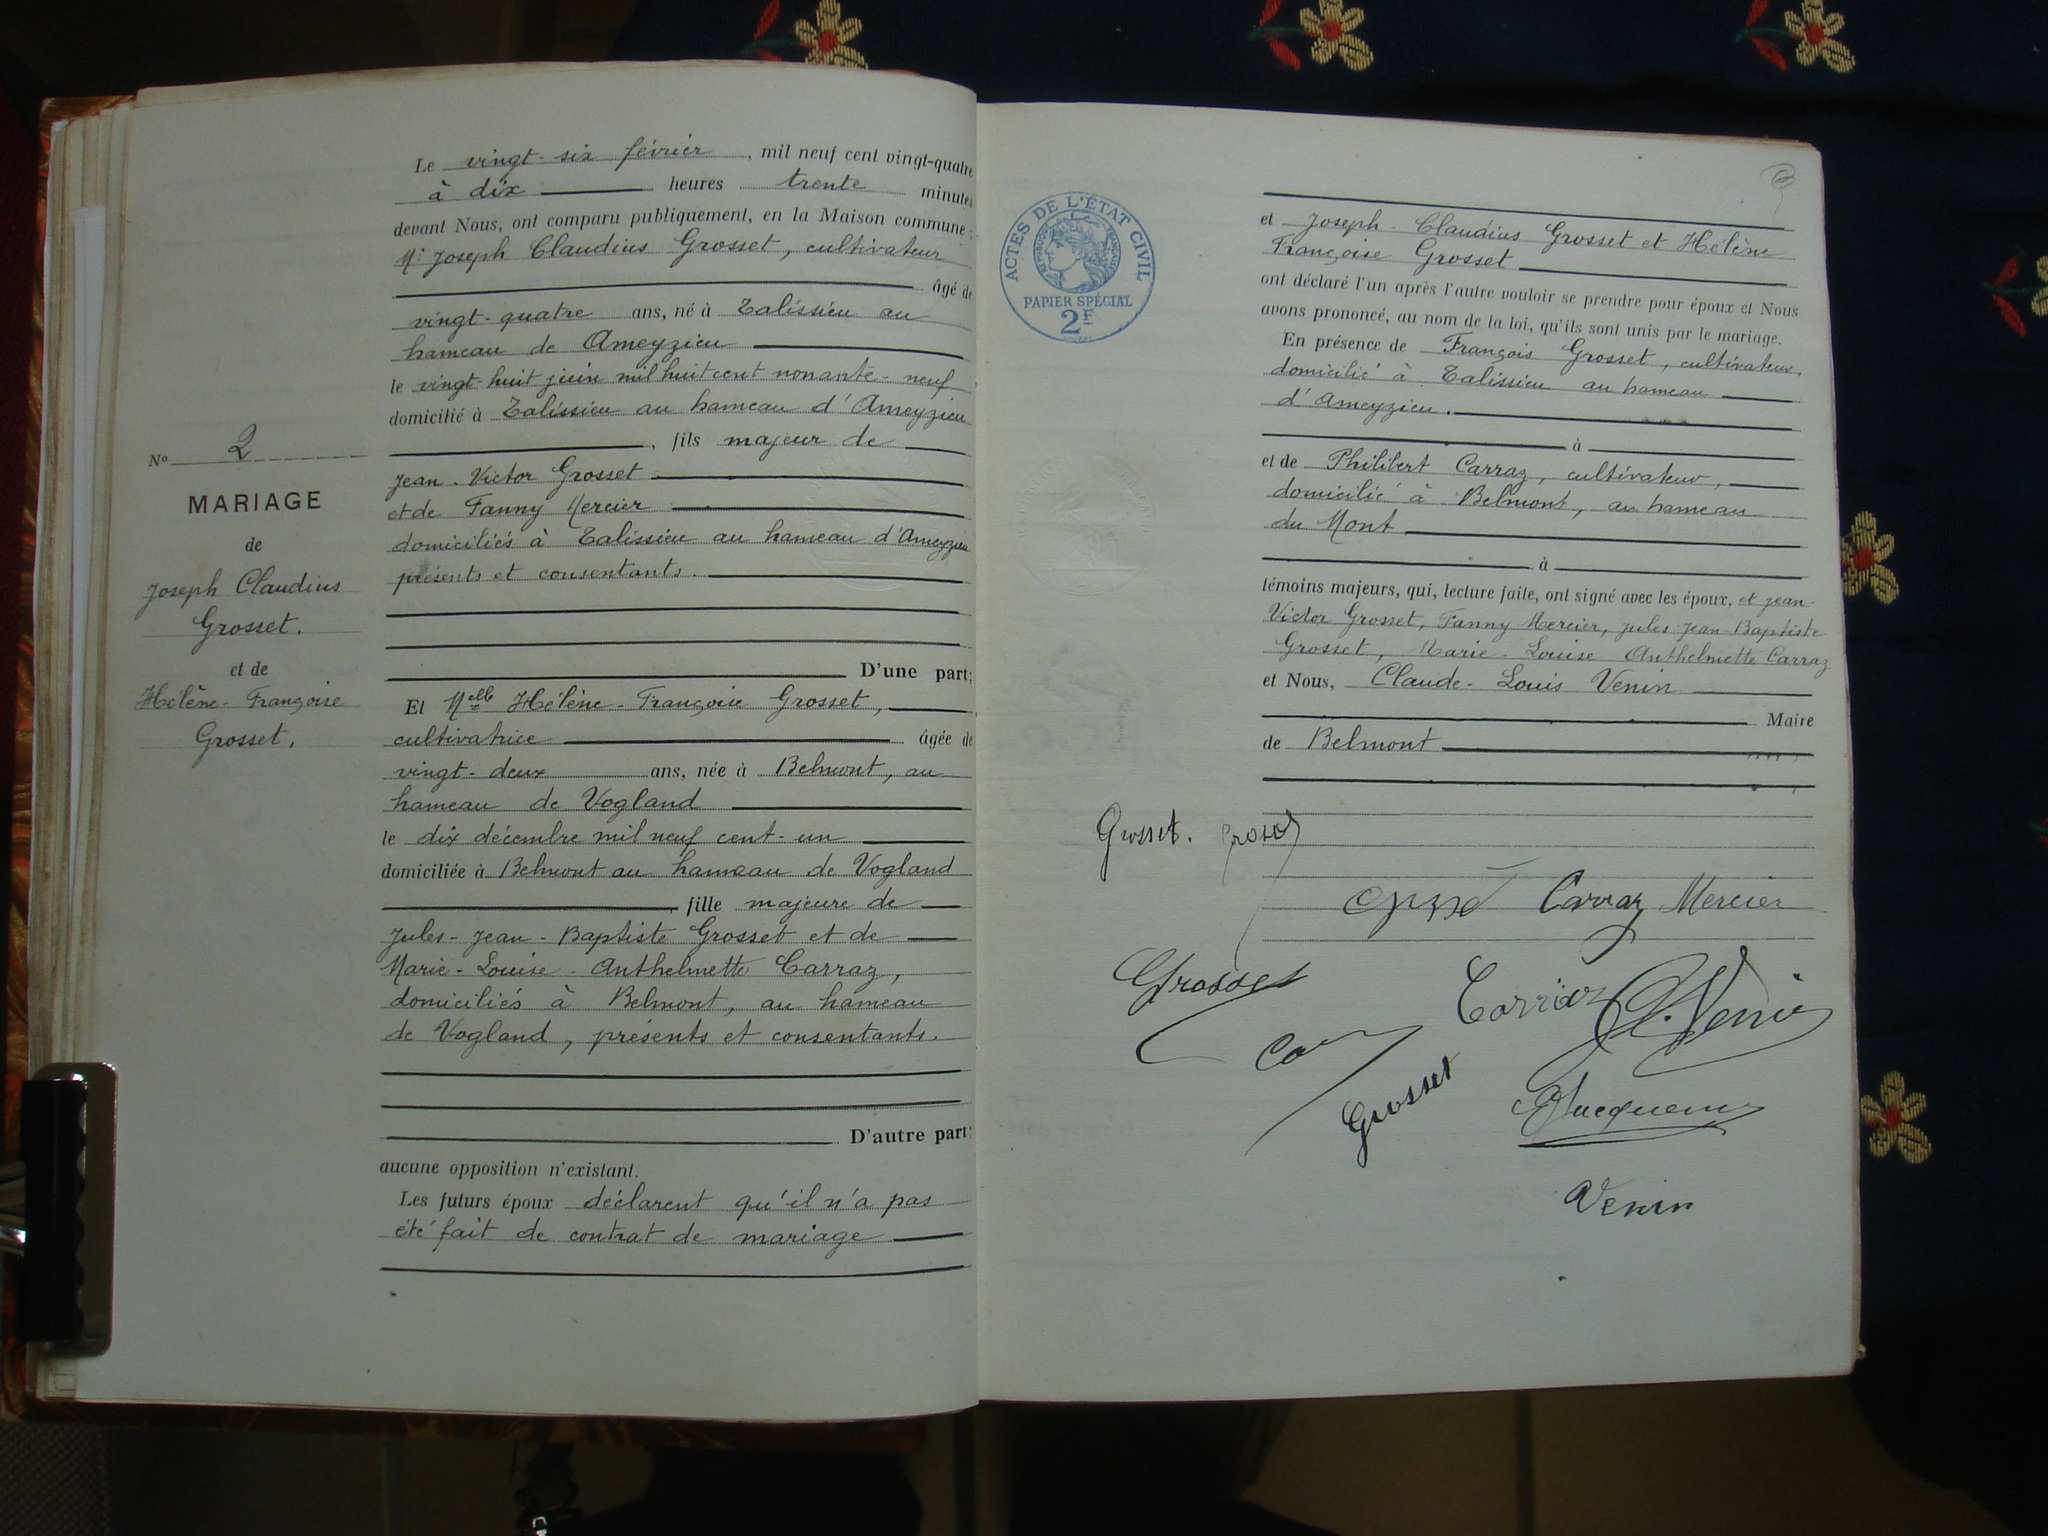 Le vingt-six février, mil neuf cent vingt-quatre
à dix heures trente minutes
devant Nous, ont comparu publiquement, en la Maison commune :
Mr Joseph Claudius Grosset, cultivateur
âgé de
vingt-quatre ans, né à Talissieu au
hameau de Ameyzieu
le vingt-huit juin mil huit cent nonante-neuf
domicilié à Talissieu au hameau d'Ameyzieu
, fils majeur de
Jean-Victor Grosset
et de Fanny Mercier
domiciliés à Talissieu au hameau d'Ameyzieu
présents et consentants.
D'une part;
Et Melle Hélène-Françoise Grosset,
cultivatrice âgée de
vingt-deux ans, née à Belmont, au
hameau de Vogland
le dix décembre mil neuf cent-un
domiciliée à Belmont au hameau de Vogland
, fille majeure de
Jules-Jean-Baptiste Grosset et de
Marie-Louise-Anthelmette Carraz,
domiciliés à Belmont, au hameau
de Vogland, présents et consentants.
D'autre part;
aucune opposition n'existant.
Les futurs époux déclarent qu'il n'a pas
été fait de contrat de mariage
No 2
MARIAGE
de
Joseph Claudius
Grosset.
et de
Hélène-Françoise
Grosset.
ACTES DE L'ÉTAT CIVIL
RÉPUBLIQUE FRANÇAISE
PAPIER SPÉCIAL
2F
et Joseph-Claudius Grosset et Hélène
Françoise Grosset
ont déclaré l'un après l'autre vouloir se prendre pour époux et Nous
avons prononcé, au nom de la loi, qu'ils sont unis par le mariage.
En présence de François Grosset, cultivateur,
domicilié à Talissieu au hameau
d'Ameyzieu.
à
et de Philibert Carraz, cultivateur,
domicilié à Belmont, au hameau
du Mont
à
témoins majeurs, qui, lecture faite, ont signé avec les époux, et Jean-
Victor Grosset, Fanny Mercier, Jules-Jean-Baptiste
Grosset, Marie-Louise Anthelmette Carraz
et Nous, Claude-Louis Venin
Maire
de Belmont
Grosset. Grosset
Carraz Mercier
Grosset
Carraz C. Venin
Grosset
Jacquemin
Venin